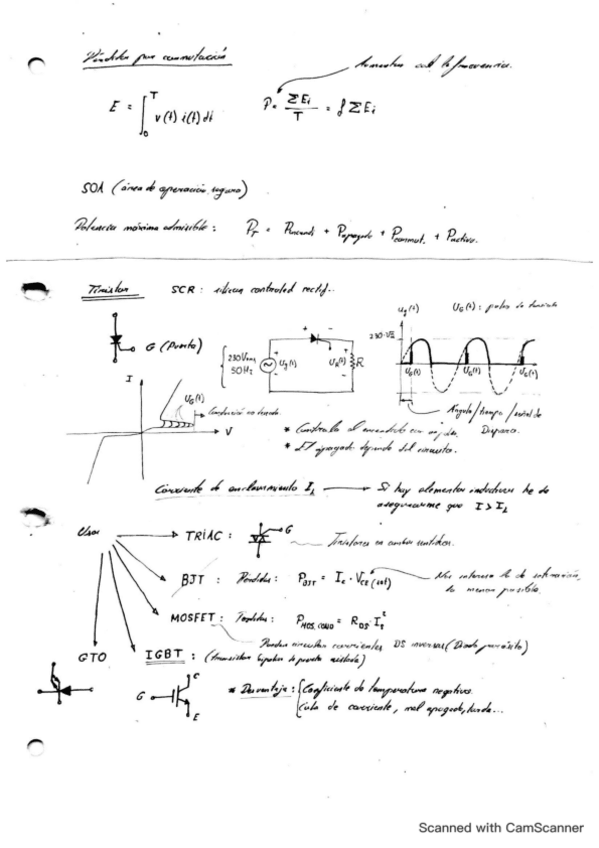 Pérdidas por conmutación
Aumentan con la frecuencia.
E = ∫₀ᵀ v(t) i(t) dt
P = ΣEi / T = f ΣEi
SOA (área de operación segura)
Potencia máxima admisible: PT = Pencendi + Papagado + Pconmut. + Pactivo.
Tiristor SCR: silicon controled rectif..
G (Puerta)
230Vrms
50Hz
Ug(t)
+ -
UR(t) R
Ug(t) UG(t): pulso de
230·√2
UG(t) UG(t) UG(t)
Ángulo/tiempo/señal de
Disparo.
I
UG(t)
Conducción
V
* Controla el encendido con
* El apagado depende del circuito.
Corriente de enclavamiento IL
Si hay elementos inductivos he de
asegurarme que I > IL
TRIAC: G
Tiristores en ambos sentidos.
BJT: Pérdidas: PBJT = Ic · VCE(sat)
Nos interesa
lo menor posible.
MOSFET: Pérdidas: PMOS,COND = RDS·I²
Pueden circular corrientes DS inversas (Diodo parásito)
GTO
IGBT: (transistor bipolar de puerta aislada)
G C E
* Desventaja: Coeficiente de temperatura negativo.
Cola de corriente, mal apagado, tarda...
Scanned with CamScanner